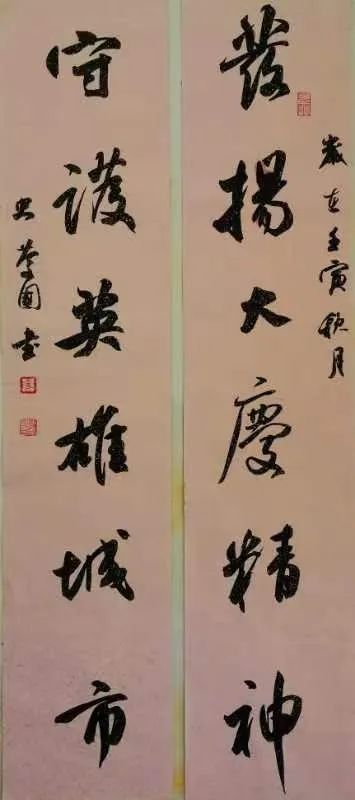 歲在壬寅秋月
發揚大慶精神
守護英雄城市